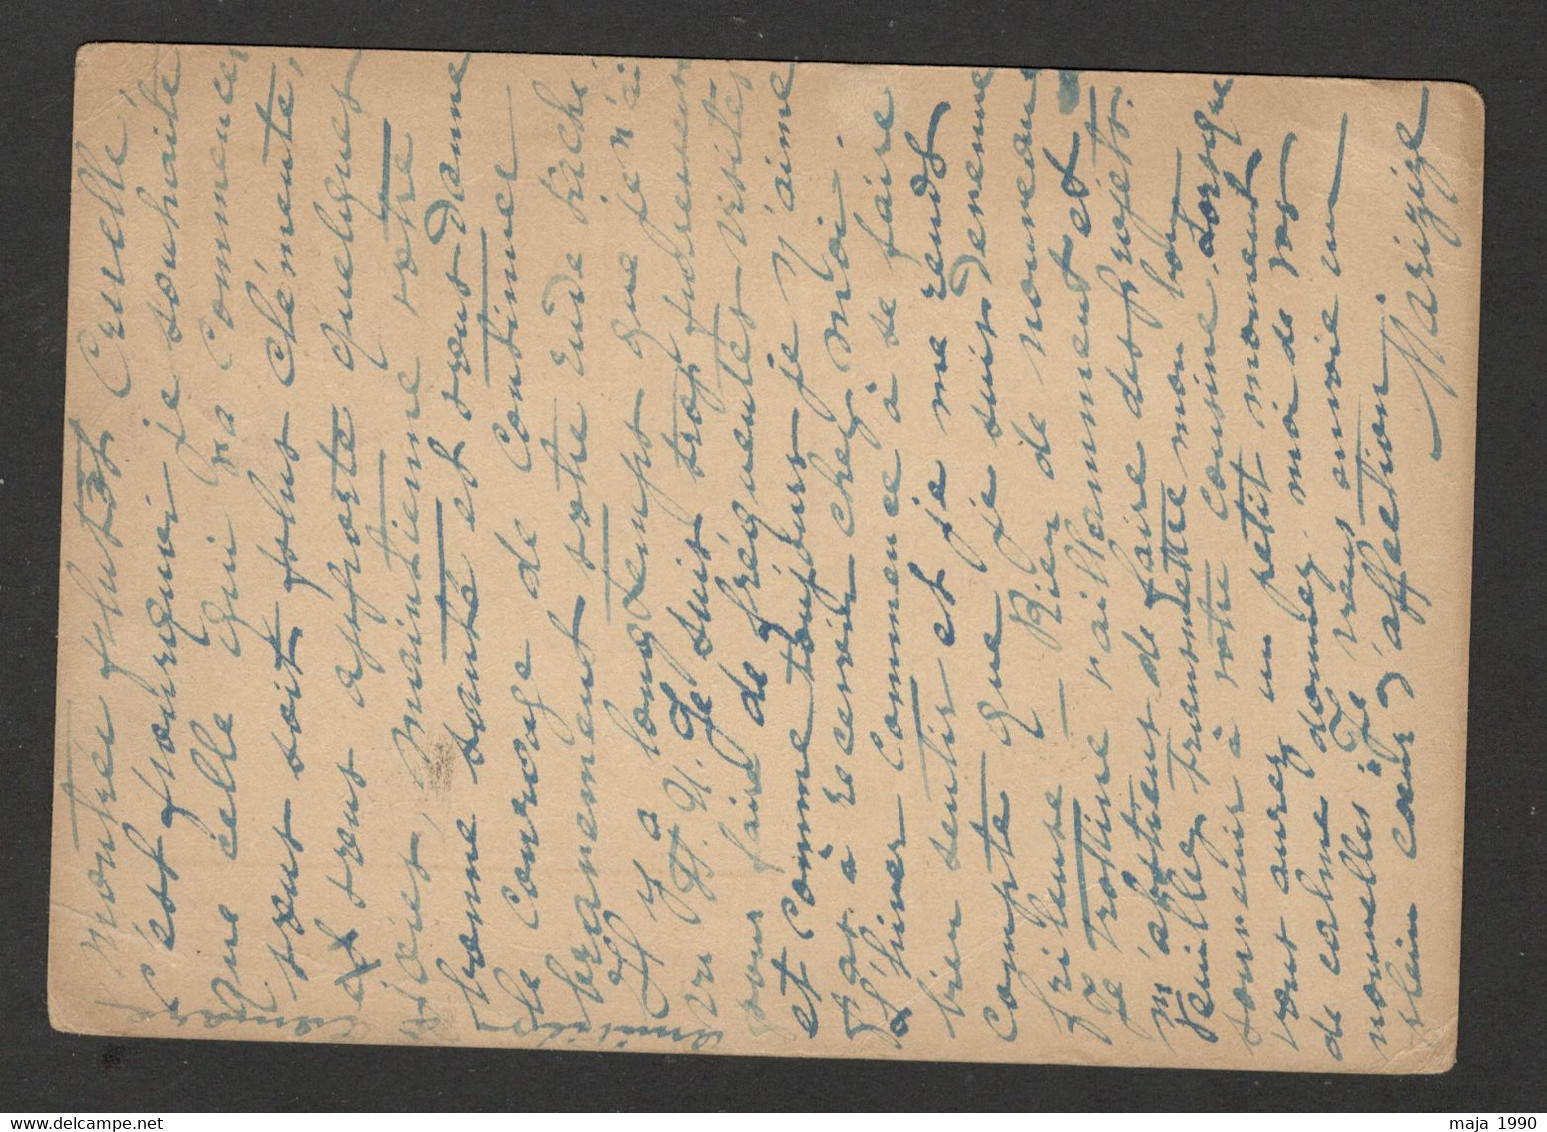 montrée plutôt cruelle,
c'est pourquoi je souhaite
que celle qui va commencer
vous soit plus clémente,
et vous apporte quelques
joies, maintienne votre
bonne santé et vous donne
le courage de continuer
bravement votre rude tâche
Il y a longtemps que je n'ai
vu H. N. Je suis trop
pour faire de fréquentes visites
et comme toujours je n'aime
pas à recevoir chez moi.
L'hiver commence à se faire
bien sentir et je me rends
compte que je suis devenue
frileuse – Rien de nouveau
Je trottine vaillamment et
m'abstiens de faire des projets.
Veuillez transmettre mon bon
souvenir à votre cousine. Lorsque
vous aurez un petit moment
de calme donnez-moi de vos
nouvelles. Je vous envoie un
plein cœur d'affection.
maja 1990